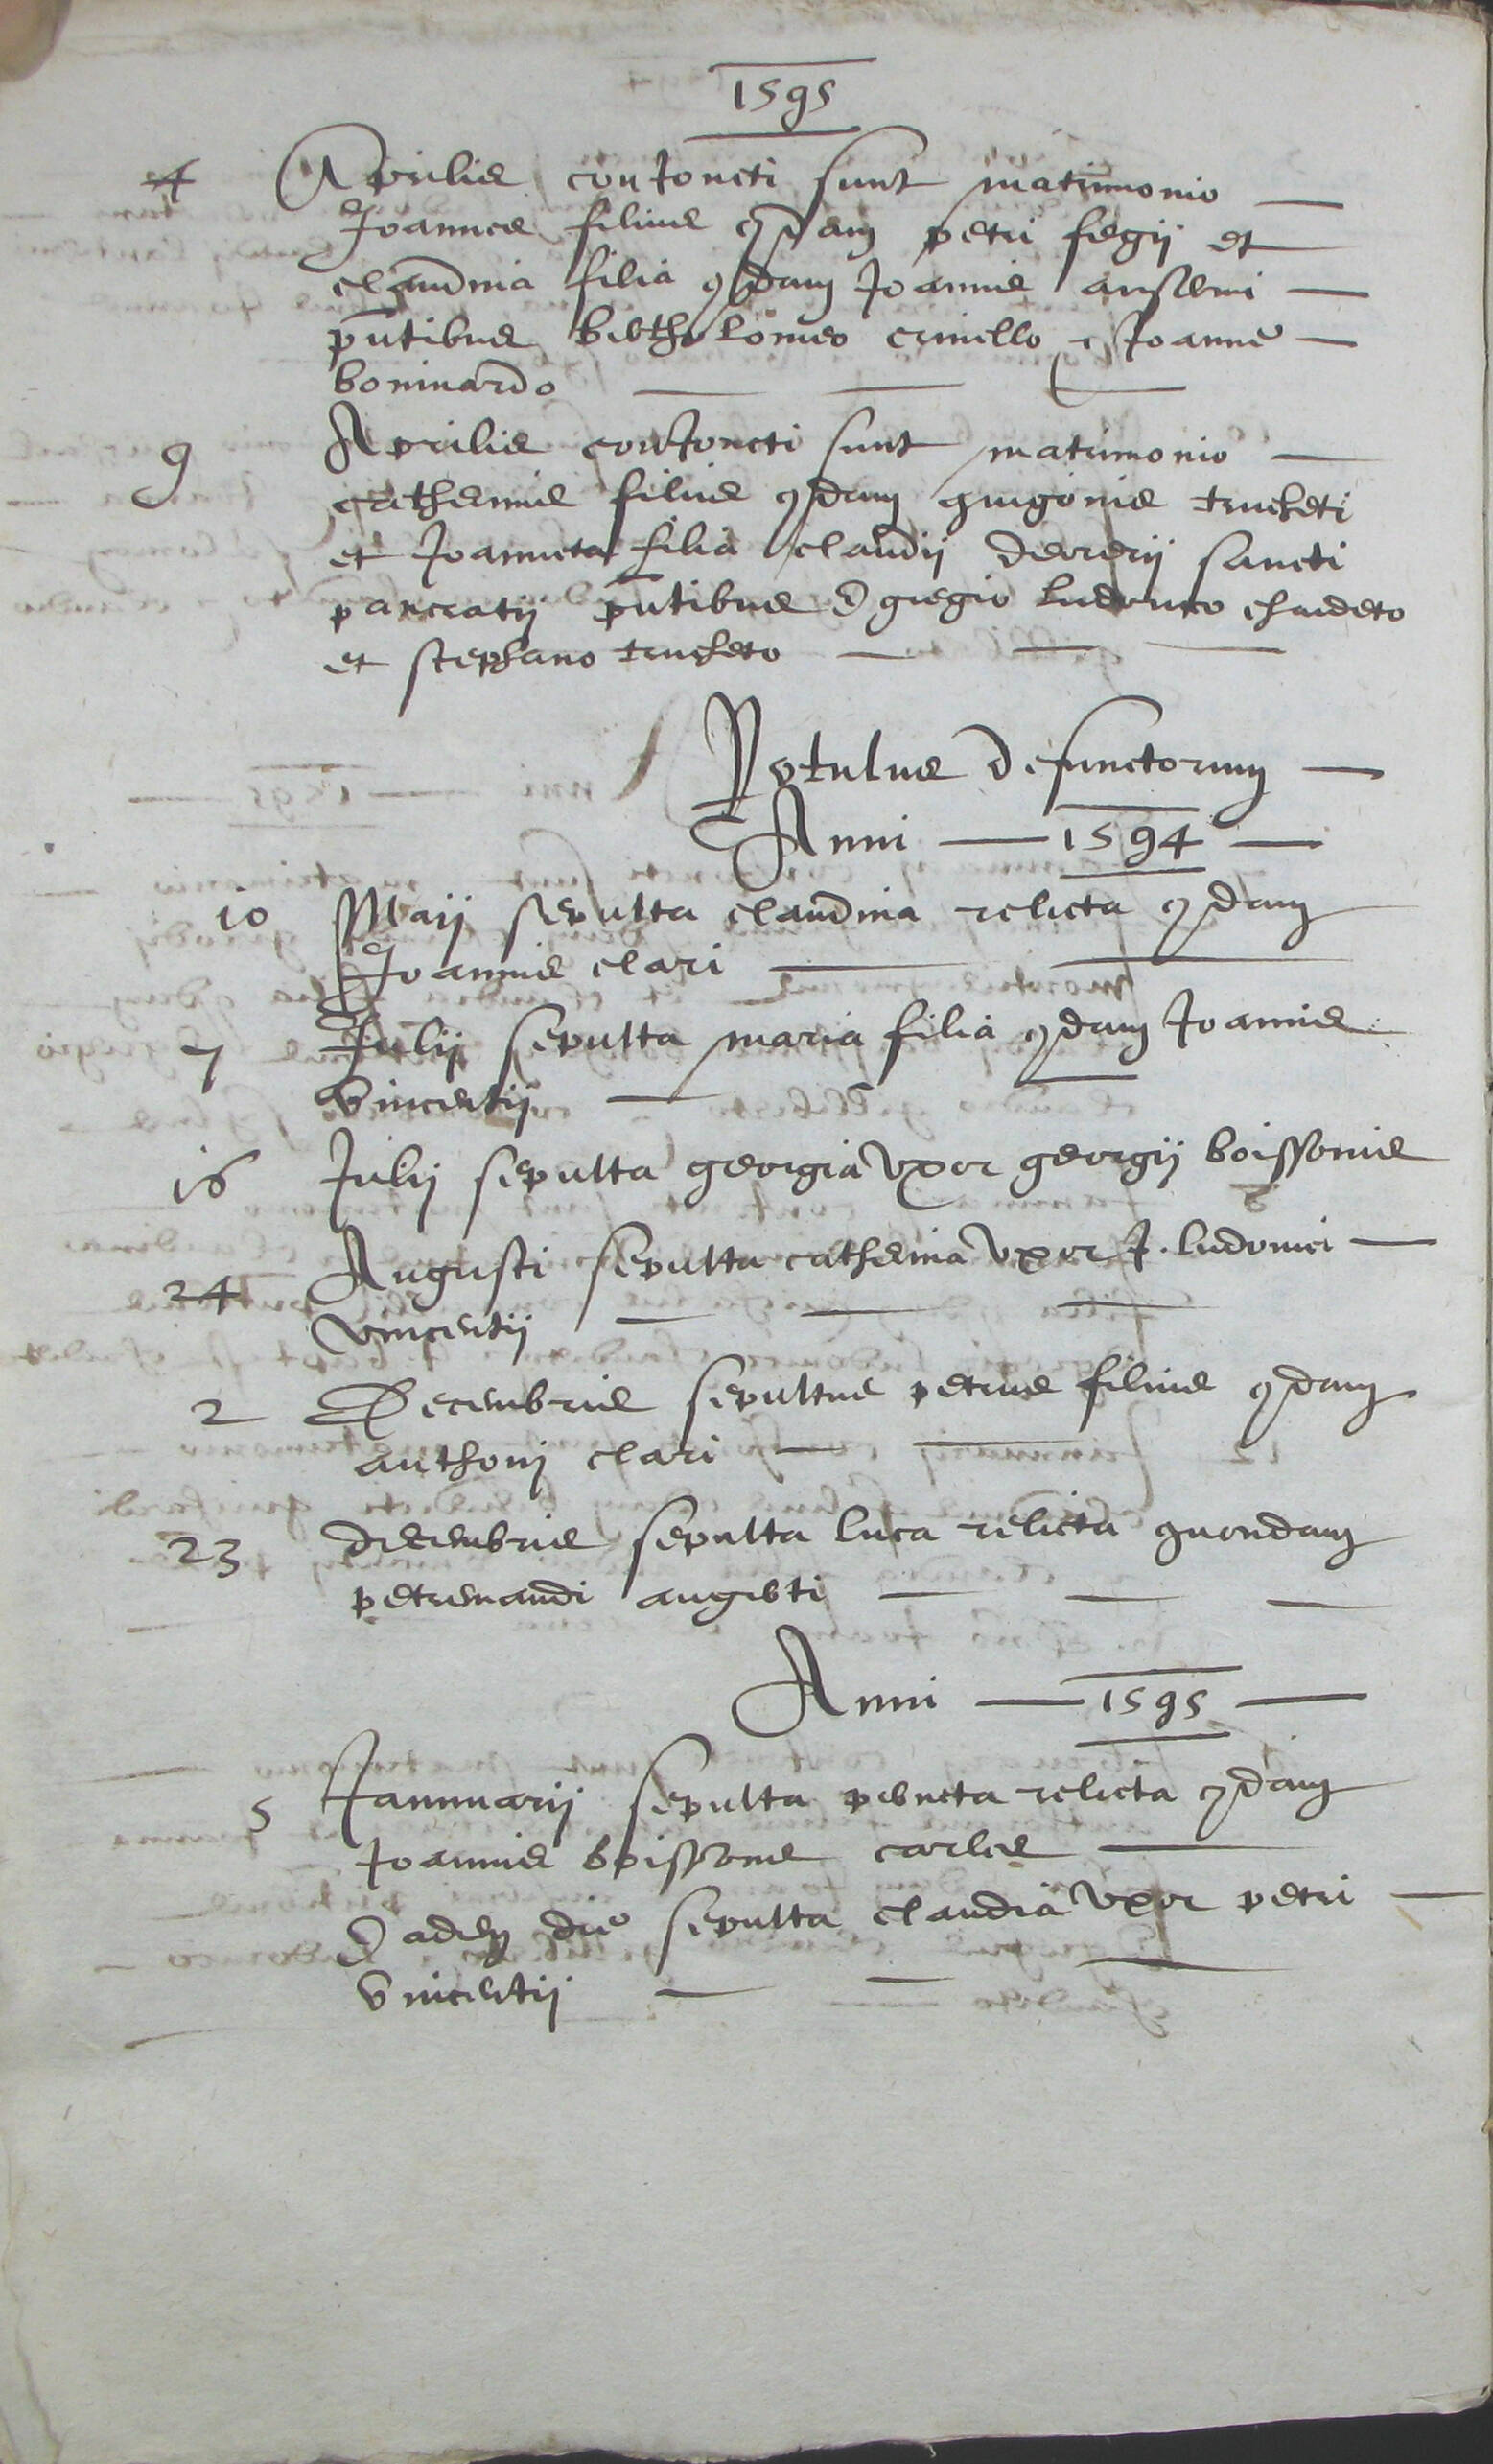 1595
4 Aprilis conjoncti sunt matrimonio
Joannes filius qdam petri fegij et
claudina filia qdam Joannis anselmi
pntibus bertholomeo crinello et Joanne
boninardo
9 Aprilis conjoncti sunt matrimonio
catherinus filius qdam guigonis trucheti
et Joanneta filia claudij sancti
pancratij pntibus Egregio ludovico chaudeto
et stephano trucheto
Rotulus defunctorum
Anni 1594
10 Maij sepulta claudina relicta qdam
Joannis clari
7 Julij sepulta maria filia qdam Joannis
Vincentij
16 Julij sepulta georgia Vxor georgij boissonis
24 Augusti sepulta catherina Vxor J. ludovici
vincentij
2 Decembris sepultus petrus filius qdam
anthonij clari
23 decembris sepulta luca relicta quondam
petremandi augerti
Anni 1595
5 Jannuarij sepulta perneta relicta qdam
Joannis boissonis carles
Eadem die sepulta claudia Vxor petri
Vincentij